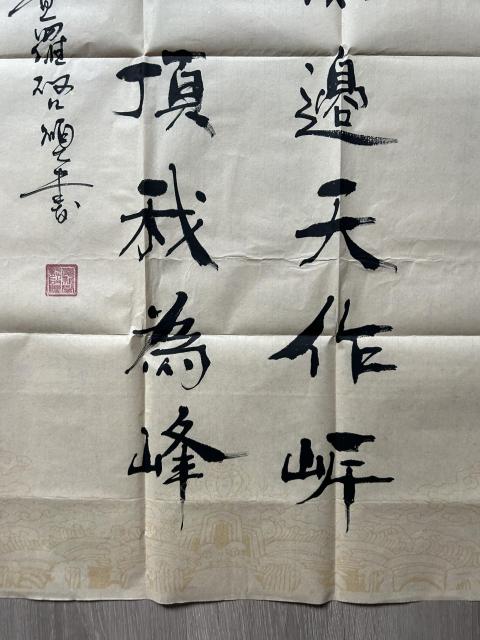 邊天作岸
頂我為峰
羅 書